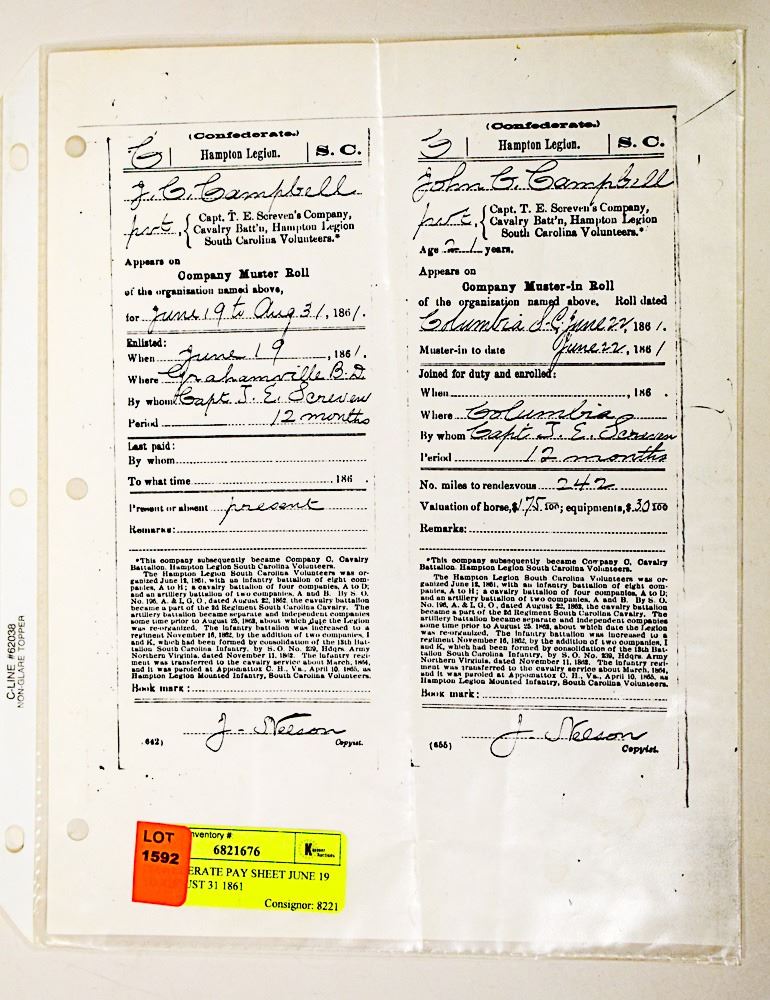 (Confederate.)
C | Hampton Legion. | S. C.
J. C. Campbell
pvt., { Capt. T. E. Screven's Company,
Cavalry Batt'n, Hampton Legion
South Carolina Volunteers.*
Appears on
Company Muster Roll
of the organization named above,
for June 19 to Aug 31, 1861.
Enlisted:
When June 19, 1861.
Where Grahamville B.D.
By whom Capt T. E. Screven
Period 12 months
Last paid:
By whom
To what time 186 .
Present or absent present
Remarks:
*This company subsequently became Company C, Cavalry
Battalion, Hampton Legion South Carolina Volunteers.
The Hampton Legion South Carolina Volunteers was or-
ganized June 12, 1861, with an infantry battalion of eight com-
panies, A to H; a cavalry battalion of four companies, A to D;
and an artillery battalion of two companies, A and B. By S. O.
No. 196, A. & I. G. O., dated August 22, 1862, the cavalry battalion
became a part of the 2d Regiment South Carolina Cavalry. The
artillery battalion became separate and independent companies
some time prior to August 25, 1862, about which date the Legion
was re-organized. The infantry battalion was increased to a
regiment November 16, 1862, by the addition of two companies, I
and K, which had been formed by consolidation of the 13th Bat-
talion South Carolina Infantry, by S. O. No. 239, Hdqrs. Army
Northern Virginia, dated November 11, 1862. The infantry regi-
ment was transferred to the cavalry service about March, 1864,
and it was paroled at Appomattox C. H., Va., April 10, 1865, as
Hampton Legion Mounted Infantry, South Carolina Volunteers.
Book mark:
J. Nelson
642) Copyist.
(Confederate.)
C | Hampton Legion. | S. C.
John C. Campbell
pvt., { Capt. T. E. Screven's Company,
Cavalry Batt'n, Hampton Legion
South Carolina Volunteers.*
Age 21 years.
Appears on
Company Muster-in Roll
of the organization named above. Roll dated
Columbia S.C. June 22, 1861.
Muster-in to date June 22, 1861
Joined for duty and enrolled:
When , 186 .
Where Columbia
By whom Capt T. E. Screven
Period 12 months
No. miles to rendezvous 242
Valuation of horse, $175 100; equipments, $30 100
Remarks:
*This company subsequently became Company C, Cavalry
Battalion, Hampton Legion South Carolina Volunteers.
The Hampton Legion South Carolina Volunteers was or-
ganized June 12, 1861, with an infantry battalion of eight com-
panies, A to H; a cavalry battalion of four companies, A to D;
and an artillery battalion of two companies, A and B. By S. O.
No. 196, A. & I. G. O., dated August 22, 1862, the cavalry battalion
became a part of the 2d Regiment South Carolina Cavalry. The
artillery battalion became separate and independent companies
some time prior to August 25, 1862, about which date the Legion
was re-organized. The infantry battalion was increased to a
regiment November 16, 1862, by the addition of two companies, I
and K, which had been formed by consolidation of the 13th Bat-
talion South Carolina Infantry, by S. O. No. 239, Hdqrs. Army
Northern Virginia, dated November 11, 1862. The infantry regi-
ment was transferred to the cavalry service about March, 1864,
and it was paroled at Appomattox C. H., Va., April 10, 1865, as
Hampton Legion Mounted Infantry, South Carolina Volunteers.
Book mark:
J. Nelson
(655) Copyist.
C-LINE #62038
NON-GLARE TOPPER
LOT
1592
nventory #
6821676
ERATE PAY SHEET JUNE 19
UST 31 1861
Consignor: 8221